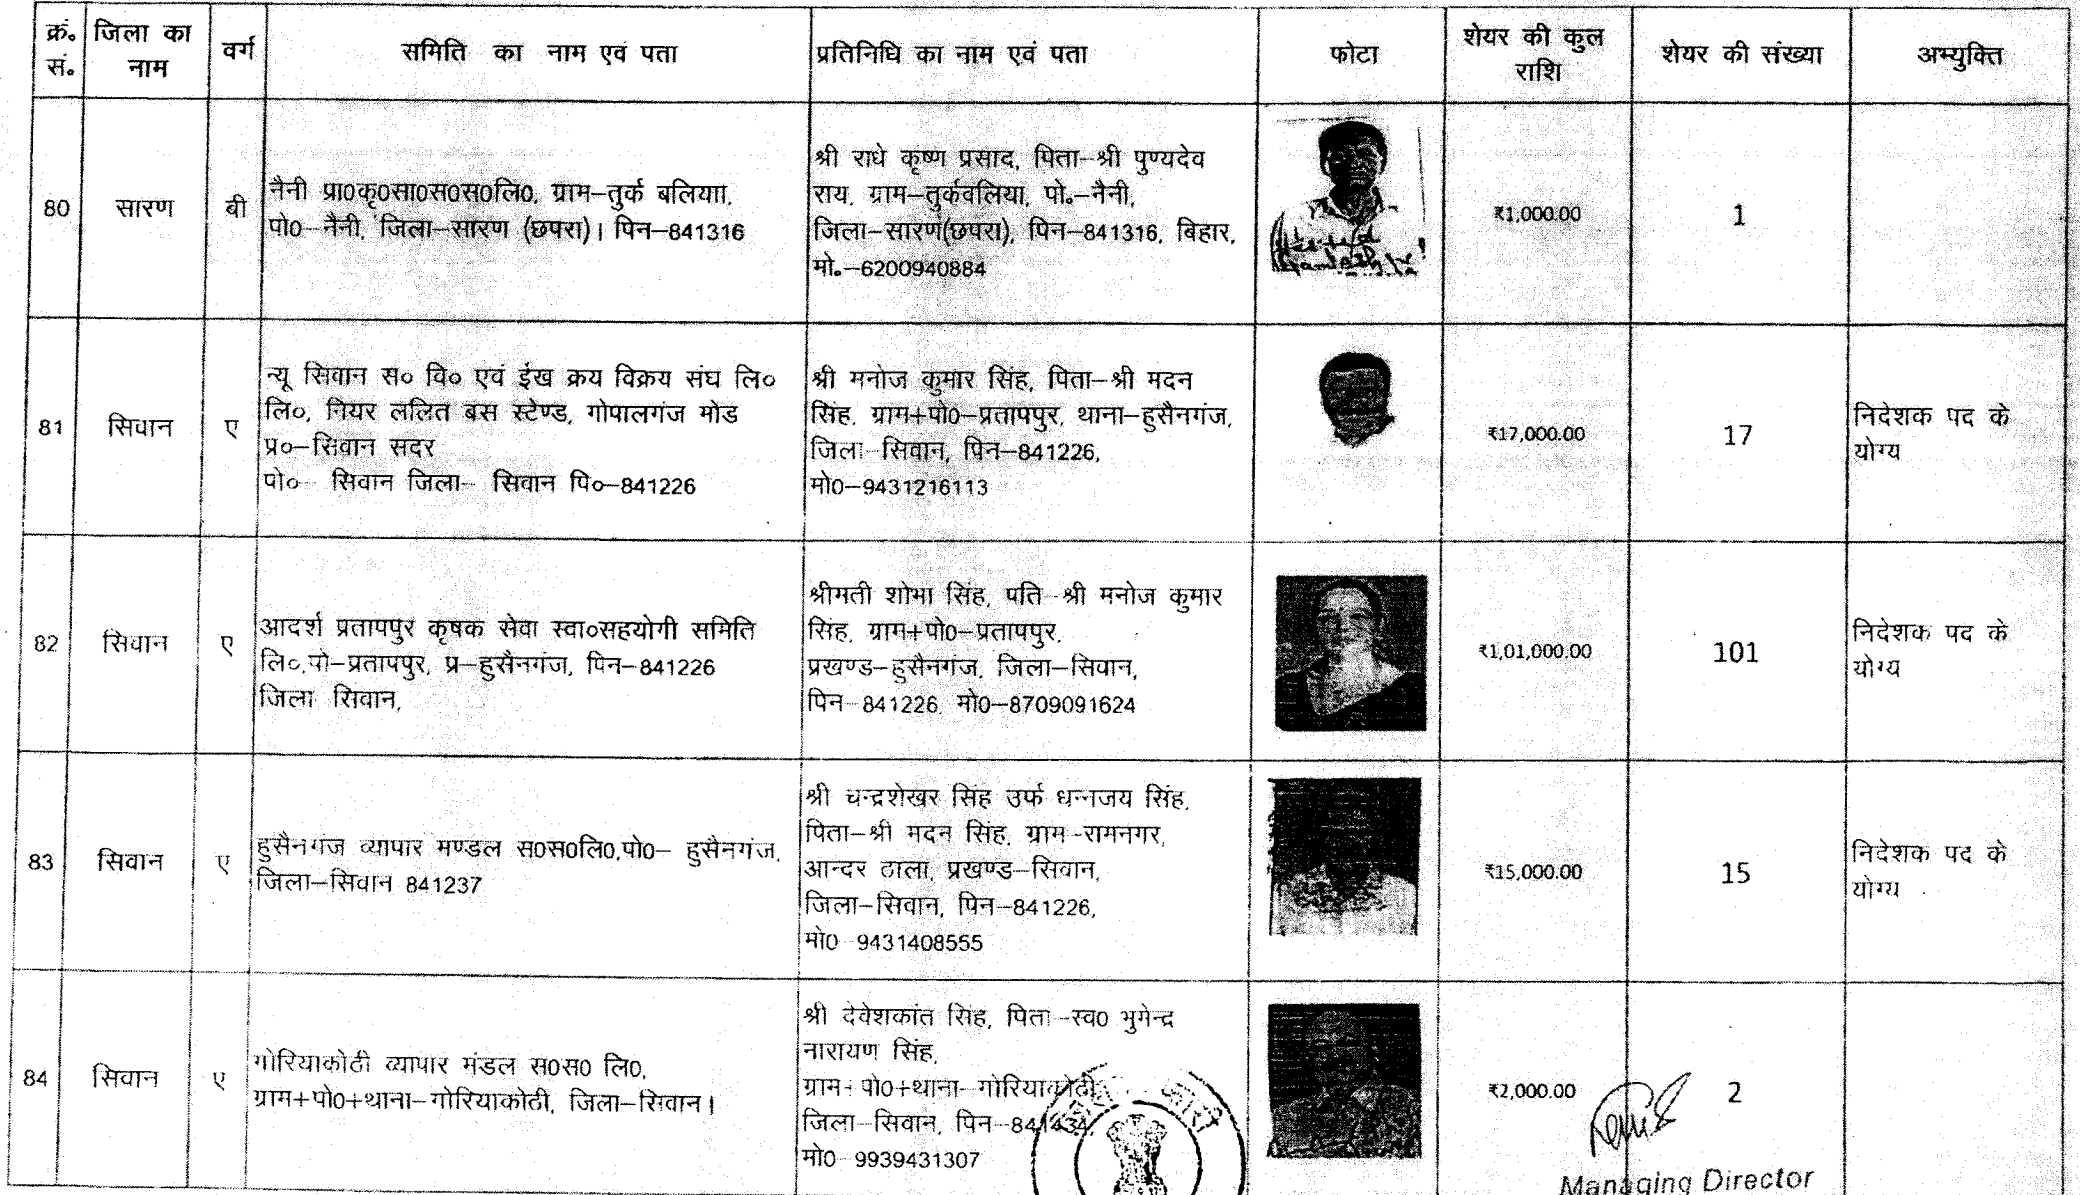 क्रं० जिला का वर्ग समिति का नाम एवं पता प्रतिनिधि का नाम एवं पता फोटा शेयर की कुल शेयर की संख्या अभ्युक्ति
सं० नाम राशि
80 सारण बी
नैनी प्रा0कृ0सा0स0स0लि0, ग्राम–तुर्क बलियाा,
पो0– नैनी, जिला–सारण (छपरा)। पिन–841316
श्री राधे कृष्ण प्रसाद, पिता–श्री पुण्यदेव
राय, ग्राम–तुर्कवलिया, पो.–नैनी,
जिला–सारण(छपरा), पिन–841316, बिहार,
मो.–6200940884
₹1,000.00 1
81 सिवान ए
न्यू सिवान स० वि० एवं ईख क्रय विक्रय संघ लि०
लि०, नियर ललित बस स्टेण्ड, गोपालगंज मोड
प्र०–सिवान सदर
पो०– सिवान जिला– सिवान पि०–841226
श्री मनोज कुमार सिंह, पिता–श्री मदन
सिंह, ग्राम+पो0–प्रतापपुर, थाना–हुसैनगंज,
जिला–सिवान, पिन–841226,
मो0–9431216113
₹17,000.00 17
निदेशक पद के
योग्य
82 सिवान ए
आदर्श प्रतापपुर कृषक सेवा स्वा०सहयोगी समिति
लि०,पो–प्रतापपुर, प्र–हुसैनगंज, पिन–841226
जिला सिवान,
श्रीमती शोभा सिंह, पति–श्री मनोज कुमार
सिंह, ग्राम+पो0–प्रतापपुर,
प्रखण्ड–हुसैनगंज, जिला–सिवान,
पिन–841226, मो0–8709091624
₹1,01,000.00 101
निदेशक पद के
योग्य
83 सिवान ए
हुसैनगंज व्यापार मण्डल स0स0लि0,पो0– हुसैनगंज,
जिला–सिवान 841237
श्री चन्द्रशेखर सिंह उर्फ धन्नजय सिंह,
पिता–श्री मदन सिंह, ग्राम–रामनगर,
आन्दर ठाला, प्रखण्ड–सिवान,
जिला–सिवान, पिन–841226,
मो0–9431408555
₹15,000.00 15
निदेशक पद के
योग्य
84 सिवान ए
गोरियाकोठी व्यापार मंडल स0स0 लि0,
ग्राम+पो0+थाना–गोरियाकोठी, जिला–सिवान।
श्री देवेशकांत सिंह, पिता–स्व0 भुगेन्द्र
नारायण सिंह,
ग्राम+पो0+थाना–गोरियाकोठी,
जिला–सिवान, पिन–841434,
मो0–9939431307
₹2,000.00 2
Managing Director